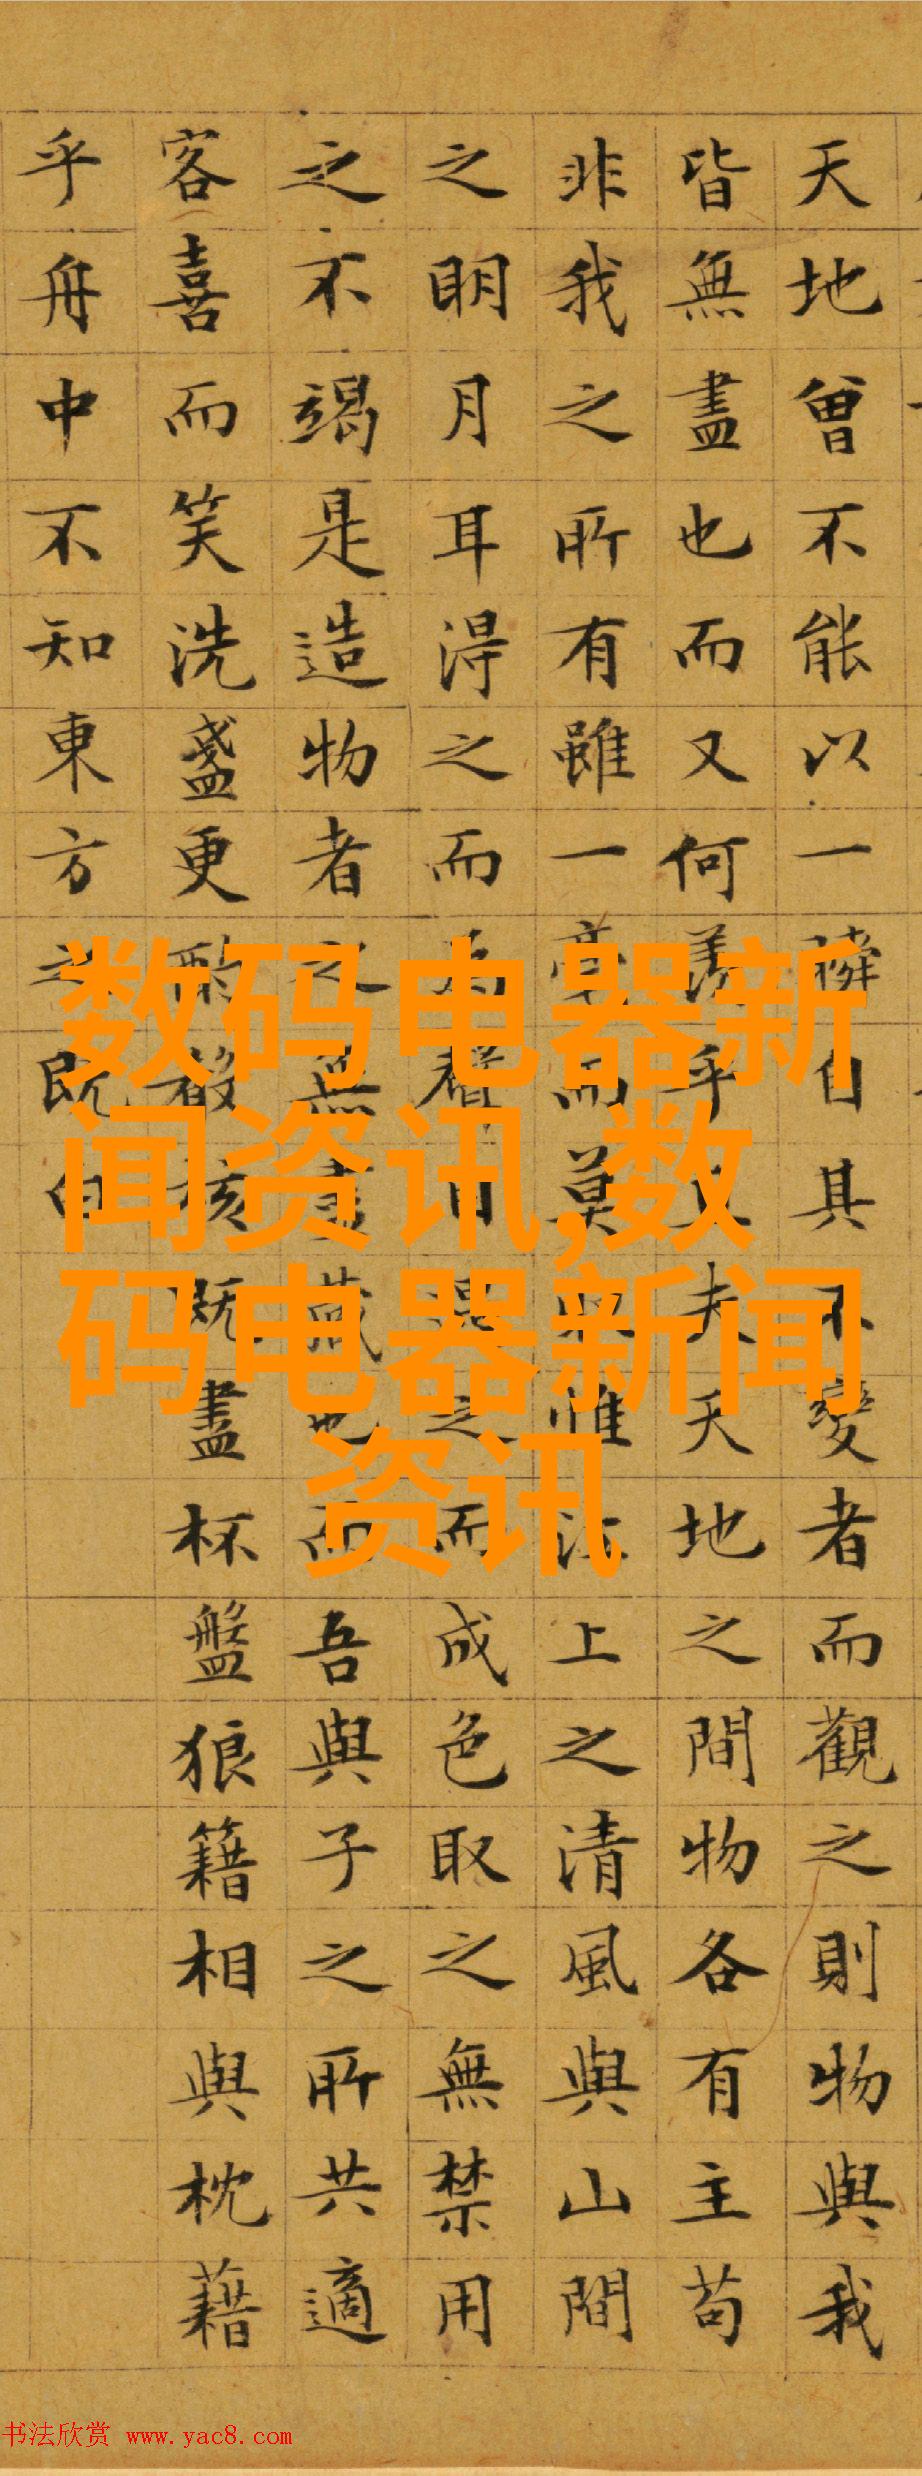 天地曾不能以一瞬自其不變者而觀之則物與我
皆無盡也而又何羨乎且夫天地之間物各有主苟
非我之所有雖一毫而莫取惟江上之清風與山間
之明月耳得之而為聲目遇之而成色取之無禁用
之不竭是造物者之無盡藏也而吾與子之所共適
客喜而笑洗盞更酌殽核既盡杯盤狼籍相與枕藉
乎舟中不知東方之既白
数码电器新
闻资讯,数
码电器新闻
资讯
书法欣赏 www.yac8.com